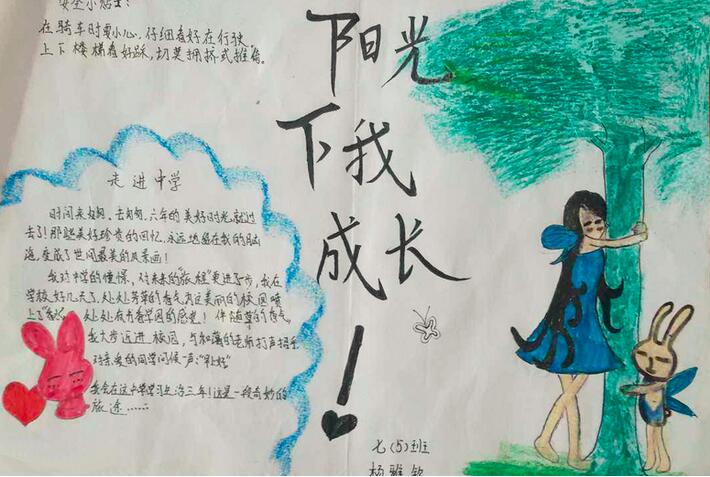 安全小贴士:
在骑车时要小心,仔细看好在行驶,
上下楼梯看好踩,切莫拥挤或推
阳光
下我
成长!
走进中学
时间来匆匆、去匆匆,六年的美好时光就过
去了!那些美好珍贵的回忆,永远地留在我的脑
海,变成了世间最美的风景画!
我对中学的憧憬,对未来的"旅程"更进了步,我在
学校好几天了,处处芳草的香气为这美丽的校园喷
上了 处处有书香学园的感觉!伴随草的香气,
我大步迈进校园,与和蔼的老师打声招呼
对亲爱的同学问候一声:"早上好"
我会在这中学学习生活三年!这是一段奇妙的
旅途……
七(5)班
杨雅钦